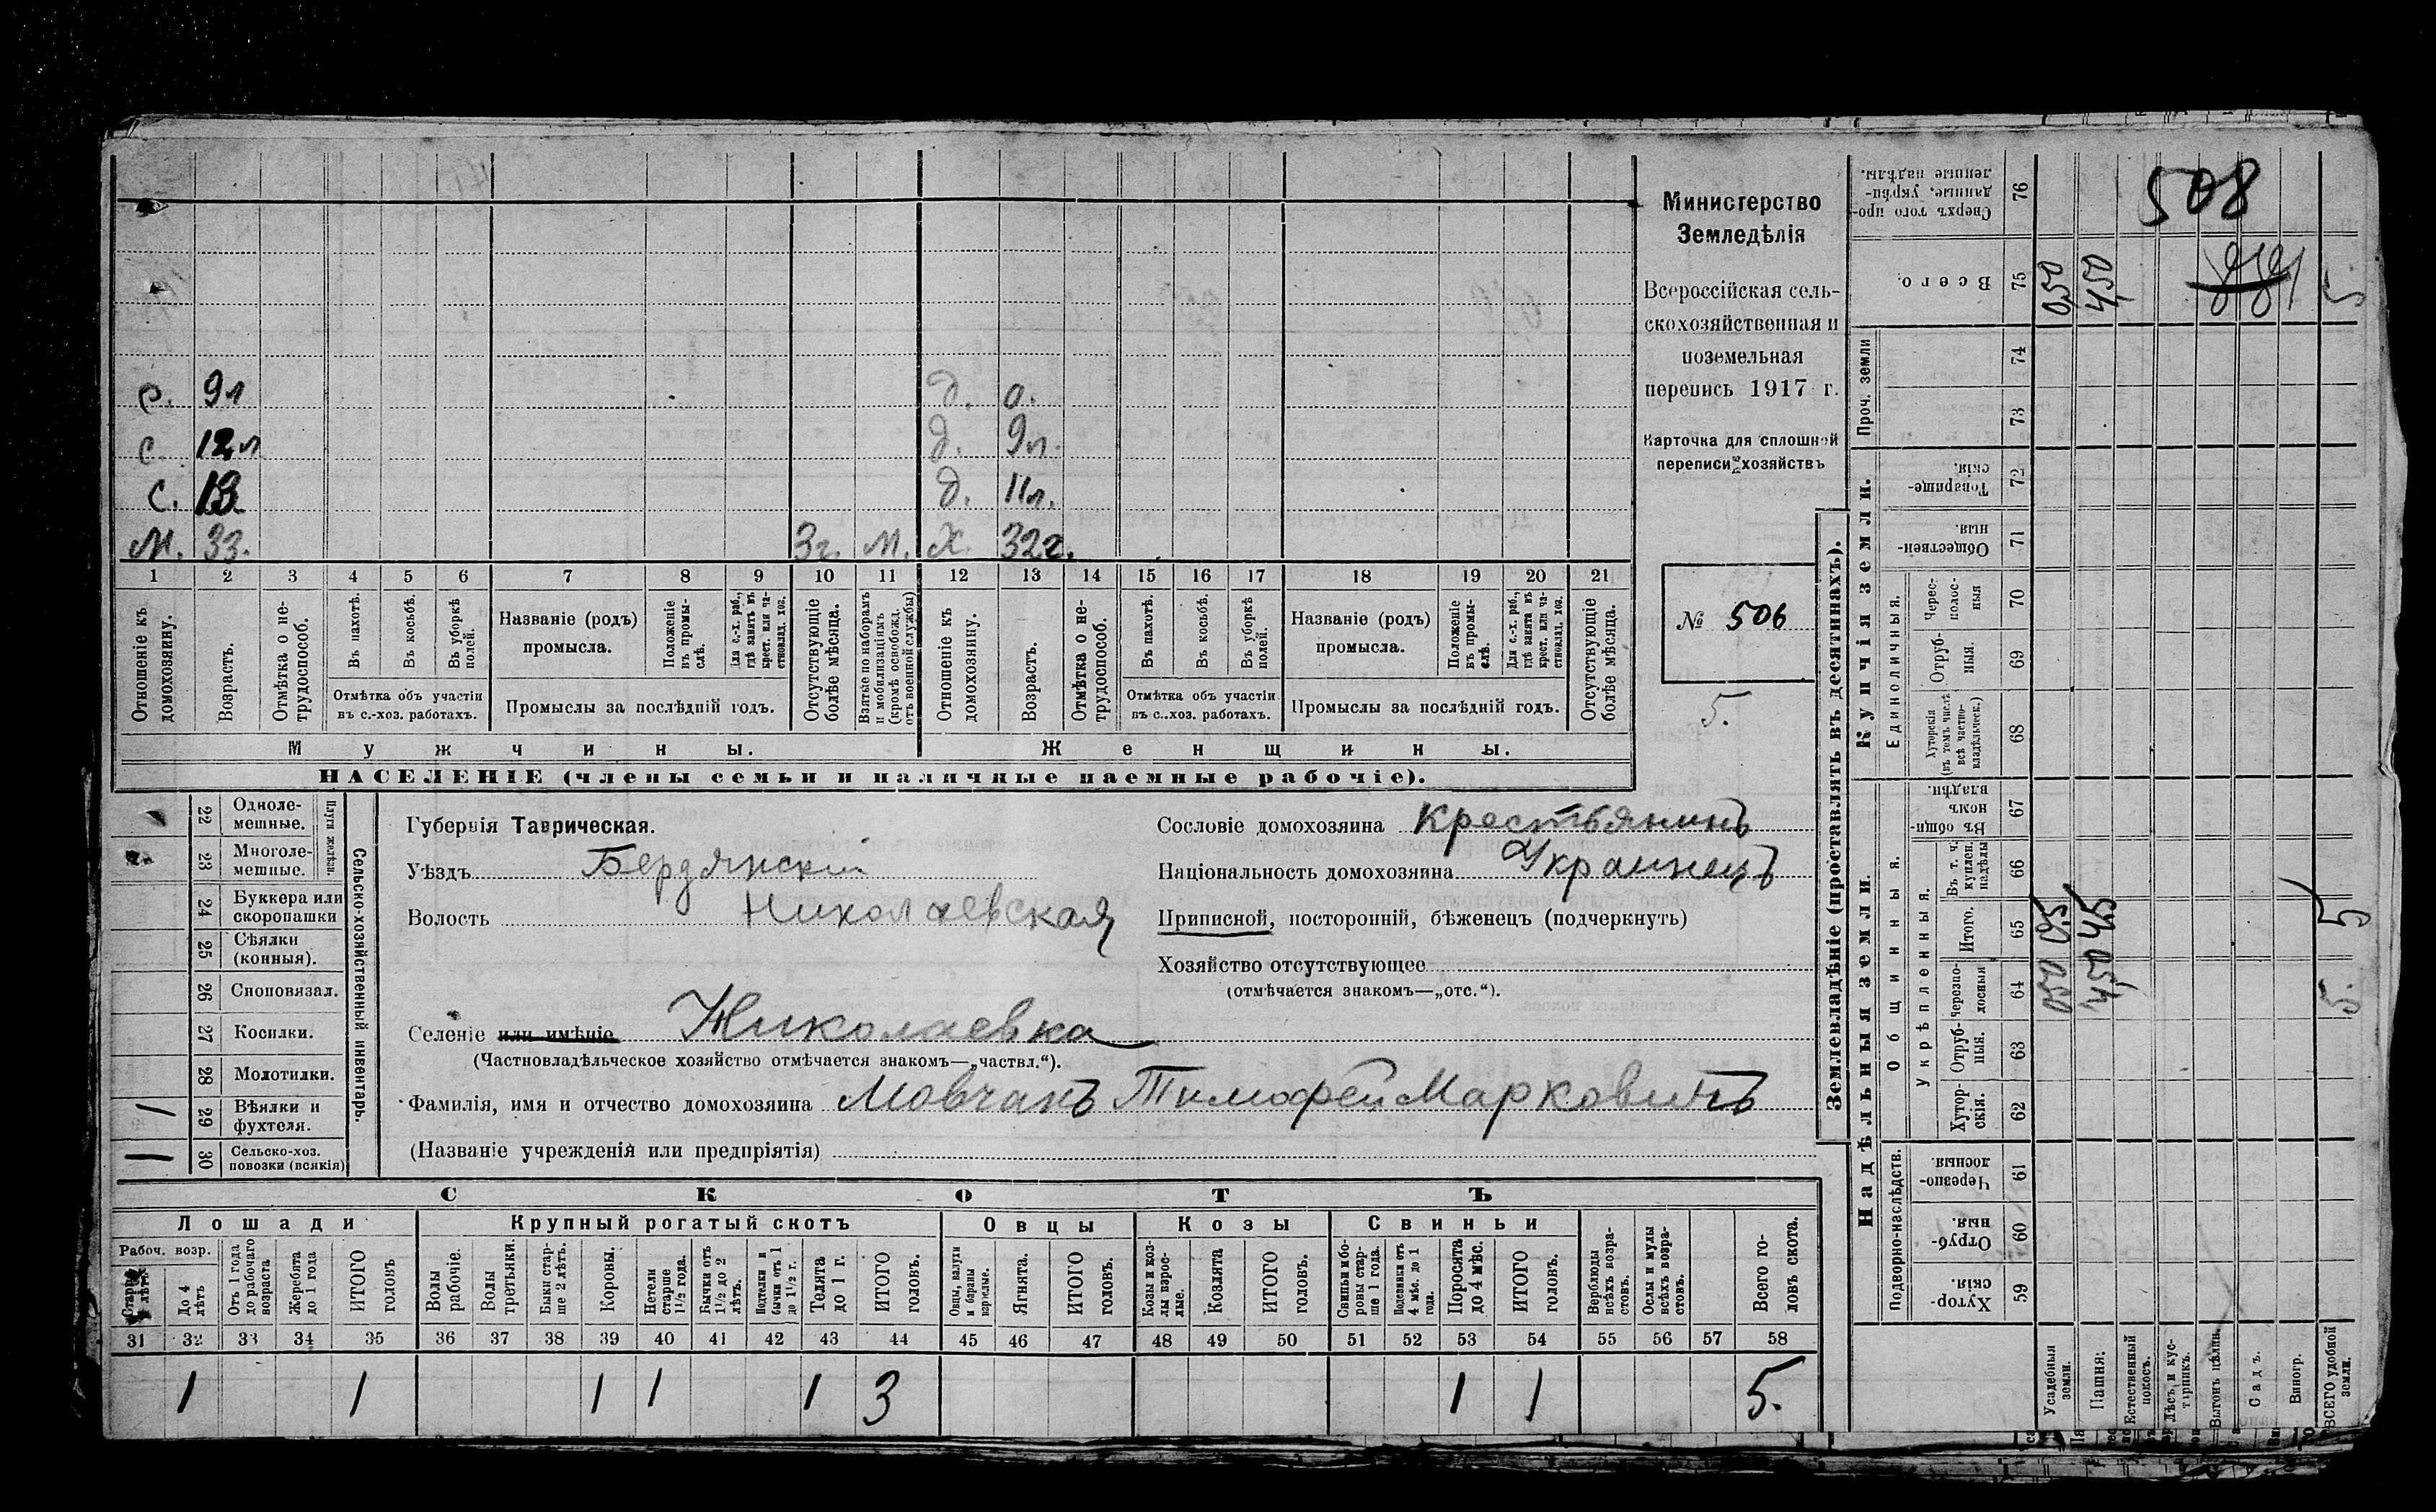 508
881
Министерство
Земледѣлія
Всероссійская сель-
скохозяйственная и
поземельная
перепись 1917 г.
Карточка для сплошной
переписи хозяйствъ
№ 506
5.
с. 9л д. о.
с. 12л д. 9л.
с. 13 д. 11л.
М. 33. 3г. м. Х. 32г.
1 2 3 4 5 6 7 8 9 10 11 12 13 14 15 16 17 18 19 20 21
Отношеніе къ домохозяину.
Возрастъ.
Отмѣтка о не-трудоспособ.
Въ пахотѣ.
Въ косьбѣ.
Въ уборкѣ полей.
Отмѣтка объ участіи
въ с.-хоз. работахъ.
Названіе (родъ)
промысла.
Положеніе въ промы-слѣ.
Для с.-х. раб., гдѣ занятъ въ крест. или ча-стновлад. хоз.
Промыслы за послѣдній годъ.
Отсутствующіе болѣе мѣсяца.
Взятые по наборамъ и мобилизаціямъ (кромѣ освобожд. отъ военной службы)
Отношеніе къ домохозяину.
Возрастъ.
Отмѣтка о не-трудоспособ.
Въ пахотѣ.
Въ косьбѣ.
Въ уборкѣ полей.
Отмѣтка объ участіи
въ с..хоз. работахъ.
Названіе (родъ)
промысла.
Положеніе въ промы-слѣ.
Для с.-х. раб., гдѣ заняти въ крест. или ча-стновлад. хоз.
Промыслы за послѣдній годъ.
Отсутствующіе болѣе мѣсяца.
Мужчины. Женщины.
НАСЕЛЕНІЕ (члены семьи и наличные наемные рабочіе).
Сельско-хозяйственный инвентарь.
Плуги желѣзн.
22 Одноле-мешные.
23 Многоле-мешные.
24 Буккера или скоропашки
25 Сѣялки (конныя).
26 Сноповязал.
27 Косилки.
28 Молотилки.
29 Вѣялки и фухтеля. 1
30 Сельско-хоз. повозки (всякія) 1
Губернія Таврическая.
Уѣздъ Бердянскій
Волость Николаевская
Селеніе или имѣніе Николаевка
(Частновладѣльческое хозяйство отмѣчается знакомъ—„частвл.“).
Фамилія, имя и отчество домохозяина Мовчанъ Тимофей Марковичъ
(Названіе учрежденія или предпріятія)
Сословіе домохозяина Крестьянинъ
Національность домохозяина Украинецъ
Приписной, посторонній, бѣженецъ (подчеркнуть)
Хозяйство отсутствующее
(отмѣчается знакомъ—„отс.“).
СКОТЪ
Лошади Крупный рогатый скотъ Овцы Козы Свиньи
Рабоч. возр.
До 4 лѣтъ
Отъ 1 года до рабочаго возраста
Жеребята до 1 года
ИТОГО головъ
Волы рабочіе.
Волы третьяки.
Быки стар-ше 2 лѣтъ.
Коровы.
Нетели старше 1½ года.
Бычки отъ 1½ до 2 лѣтъ.
Подтелки и бычки отъ 1 до 1½ г.
Телята до 1 г.
ИТОГО головъ.
Овцы, валухи и бараны взрослые.
Ягнята.
ИТОГО головъ.
Козы и коз-лы взрос-лые.
Козлята
ИТОГО головъ.
Свиньи и бо-ровы стар-ше 1 года.
Подсвинки отъ 4 мѣс. до 1 года.
Поросята до 4 мѣс.
ИТОГО головъ.
Верблюды всѣхъ возра-стовъ.
Ослы и мулы всѣхъ возра-стовъ.
Всего го-ловъ скота.
31 32 33 34 35 36 37 38 39 40 41 42 43 44 45 46 47 48 49 50 51 52 53 54 55 56 57 58
1 1 1 1 1 3 1 1 5.
Землевладѣніе (проставлять въ десятинахъ).
Надѣльныя земли. Купчія земли.
Подворно-наслѣдств.
Общинныя.
Укрѣпленныя.
Единоличныя.
Проч. земли
59 Хутор-скія.
60 Отруб-ныя.
61 Черезпо-лосныя.
62 Хутор-скія.
63 Отруб-ныя.
64 Черезпо-лосныя 050 450 5.
65 Итого. 050 450 5
66 Въ т. ч. куплен. надѣлы
67 Въ общи-номъ владѣн.
68 Хуторскія (въ томъ числѣ всѣ частно-владѣльческ.)
69 Отруб-ныя.
70 Черес-полос-ныя
71 Обществен-ныя.
72 Товарище-скія.
73
74
75 Всего. 050 450 5
76 Сверхъ того про-данные, укрѣп-ленные надѣлы.
Усадебныя земли.
Пашня:
Естественный покосъ.
Лѣсъ и кус-тарникъ.
Выгонъ цѣлин.
Садъ.
Виногр.
ВСЕГО удобной земли.